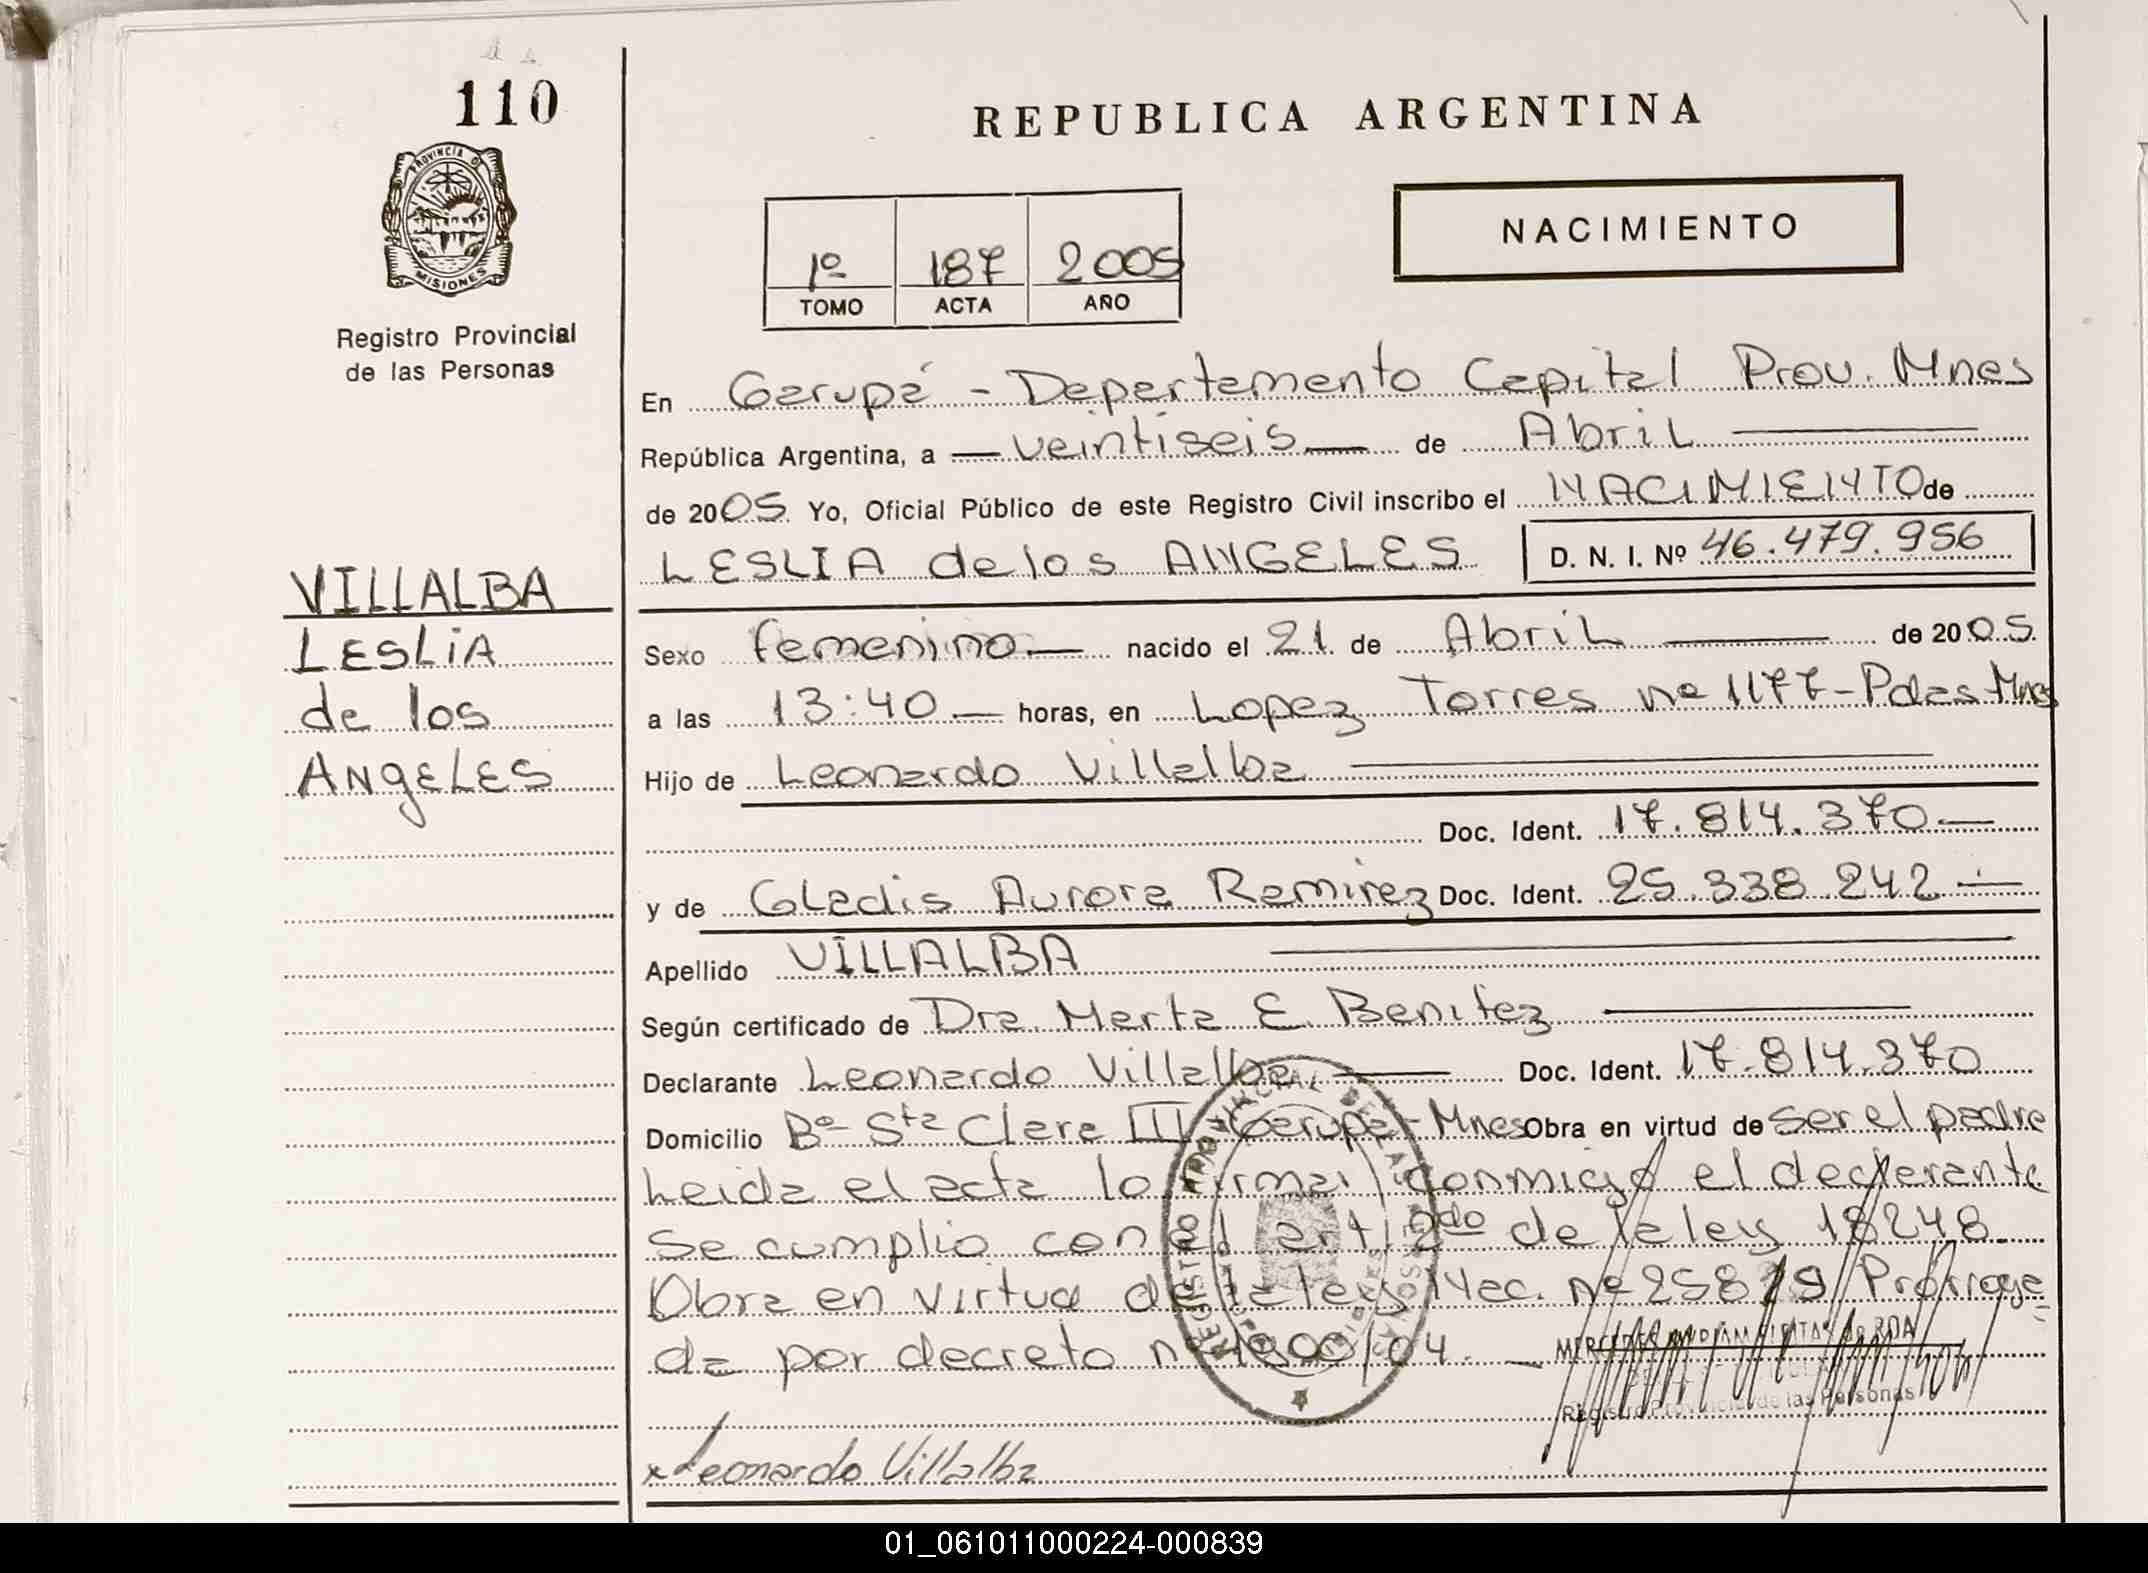 110
REPUBLICA ARGENTINA
PROVINCIA DE
MISIONES
NACIMIENTO
1º 187 2005
TOMO ACTA AÑO
Registro Provincial
de las Personas
En Garupá - Departamento Capital Prov. Mnes
República Argentina, a — veintiseis — de Abril
de 2005 Yo, Oficial Público de este Registro Civil inscribo el NACIMIENTO de
LESLIA de los ANGELES D. N. I. Nº 46.479.956
VILLALBA
LESLiA
de los
ANgELES
Sexo femenino — nacido el 21 de Abril — de 2005.
a las 13:40 — horas, en Lopez Torres nº 1177 - Pdas Mnes
Hijo de Leonardo Villalba
Doc. Ident. 17.814.370 —
y de Gladis Aurora Ramirez Doc. Ident. 25.338.242 —
Apellido VILLALBA
Según certificado de Dra. Marta E. Benitez
Declarante Leonardo Villalba — Doc. Ident. 17.814.370
Domicilio Bº Sta Clara III - Garupa - Mnes Obra en virtud de ser el padre
Leida el acta lo firma conmigo el declarante
Se cumplio con el art 2do de la ley 18248.
Obra en virtud de la ley Nac. nº 25819 Prorroga=
da por decreto nº /04. —
Registro Provincial de las Personas
x Leonardo Villalba
01_061011000224-000839